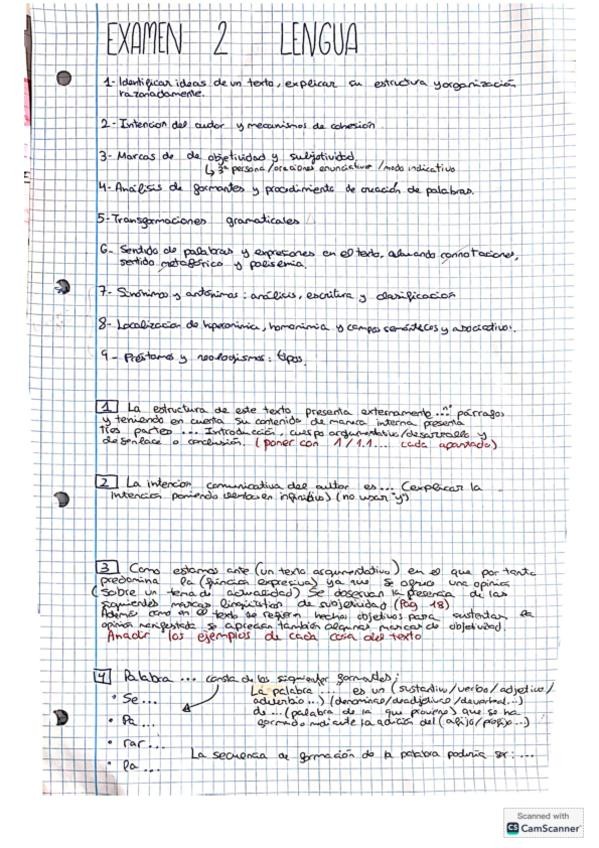 EXAMEN 2 LENGUA
1- Identificar ideas de un texto, explicar su estructura y organización
razonadamente.
2- Intención del autor y mecanismos de cohesión
3- Marcas de de objetividad y subjetividad
↳ 3ª persona / oraciones enunciativas / modo indicativo
4- Análisis de formantes y procedimiento de creación de palabras.
5- Transformaciones gramaticales
6- Sentido de palabras y expresiones en el texto, connotaciones,
sentido metafórico y polisemia.
7- Sinónimos y antónimos: análisis, escritura y clasificación
8- Localización de hiperonimia, homonimia y campos semánticos y asociativos.
9- Préstamos y neologismos: tipos.
1 La estructura de este texto presenta externamente ... "n" párrafos
y teniendo en cuenta su contenido de manera interna presenta
tres partes ... Introducción, cuerpo argumentativo/desarrollo y
desenlace o conclusión. (poner con 1/1.1... cada apartado)
2 La intención comunicativa del autor es ... (explicar la
intención poniendo verbos en infinitivo) (no usar "y")
3 Como estamos ante (un texto argumentativo) en el que por tanto
predomina la (función expresiva) ya que se ofrece una opinión
(sobre un tema de actualidad) se observan la presencia de las
siguientes marcas lingüísticas de subjetividad (Pág 18)
Además como en el texto se refieren hechos objetivos para sustentar la
opinión manifestada se aprecian también algunas marcas de objetividad.
Añadir los ejemplos de cada cosa del texto
4 Palabra ... consta de los siguientes formantes:
• Se ...
La palabra ... es un (sustantivo/verbo/adjetivo/
adverbio ...) (denominal/deadjetivo/deverbal ...)
• Pa ...
de ... (palabra de la que proviene) que se ha
formado mediante la adición del (afijo/prefijo ...)
• rar ...
La secuencia de formación de la palabra podría ser: ...
• la ...
Scanned with
CS CamScanner